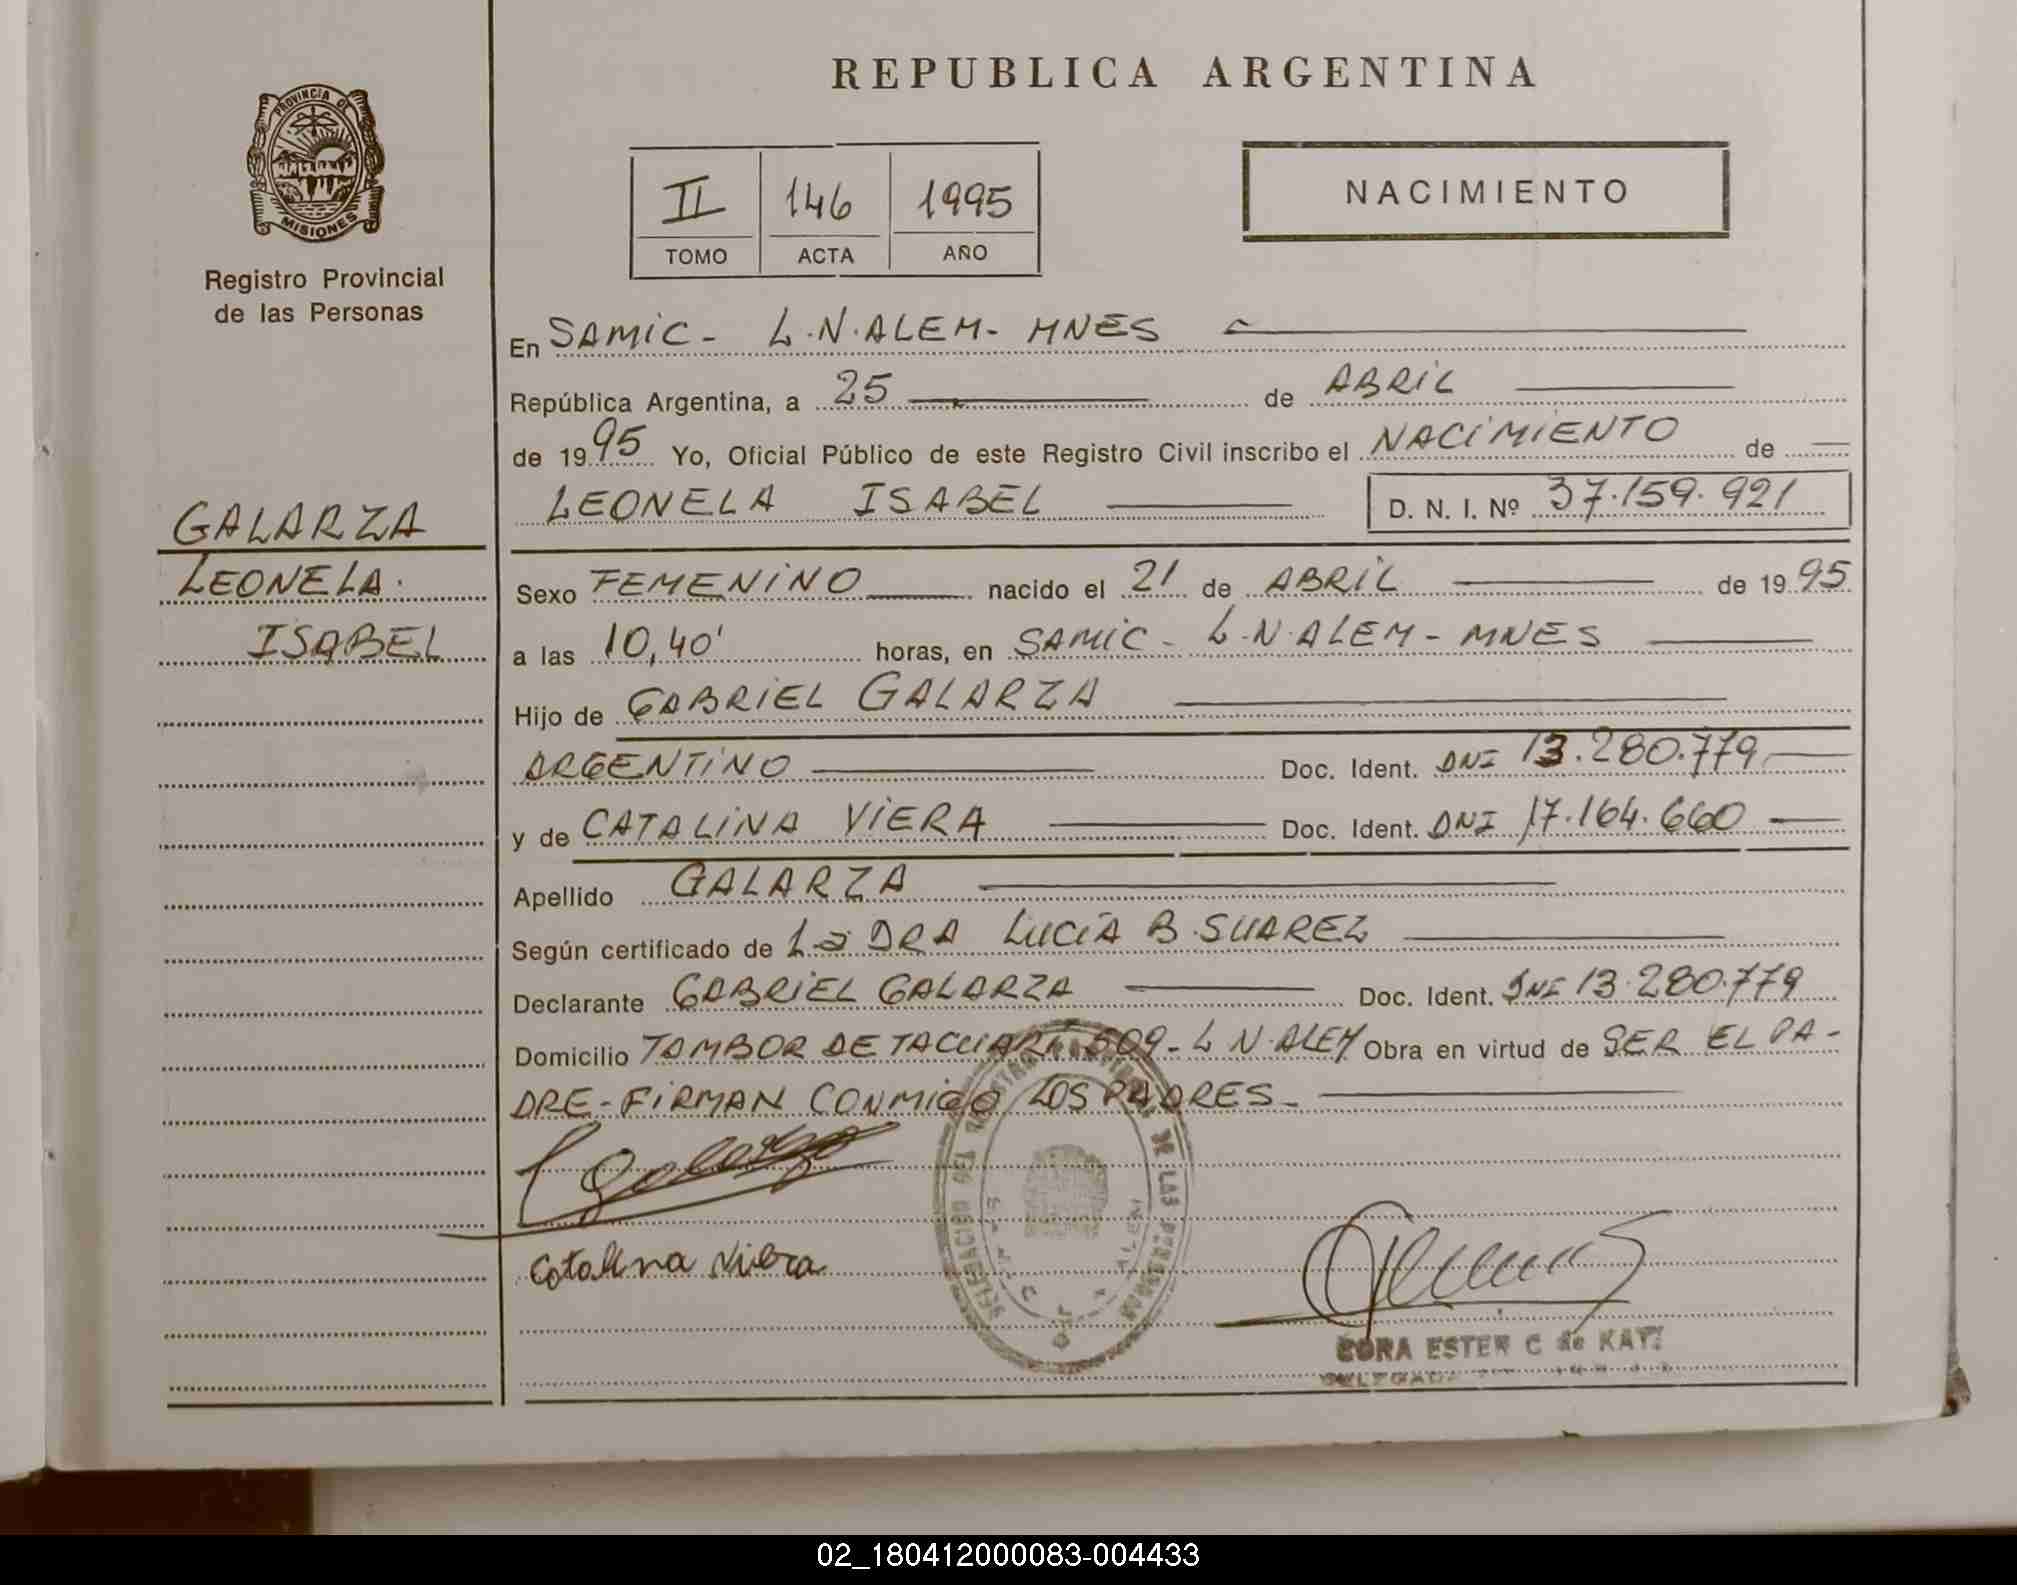 REPUBLICA ARGENTINA
PROVINCIA DE
MISIONES
Registro Provincial
de las Personas
II 146 1995
TOMO ACTA AÑO
NACIMIENTO
En SAMIC - L.N.ALEM - MNES
República Argentina, a 25 de ABRIL
de 1995 Yo, Oficial Público de este Registro Civil inscribo el NACIMIENTO de
LEONELA ISABEL D. N. I. Nº 37.159.921
GALARZA
LEONELA
ISABEL
Sexo FEMENINO nacido el 21 de ABRIL de 1995
a las 10,40' horas, en SAMIC - L.N.ALEM - MNES
Hijo de GABRIEL GALARZA
ARGENTINO Doc. Ident. DNI 13.280.779
y de CATALINA VIERA Doc. Ident. DNI 17.164.660
Apellido GALARZA
Según certificado de La DRA LUCÍA B. SUAREZ
Declarante GABRIEL GALARZA Doc. Ident. DNI 13.280.779
Domicilio TAMBOR DE TACUARÍ 509 - L N.ALEM Obra en virtud de SER EL PA-
DRE - FIRMAN CONMIGO LOS PADRES -
Galarza
Catalina Viera
DELEGACION DEL REGISTRO DE LAS PERSONAS
CORA ESTER C de
DELEGADA
02_180412000083-004433